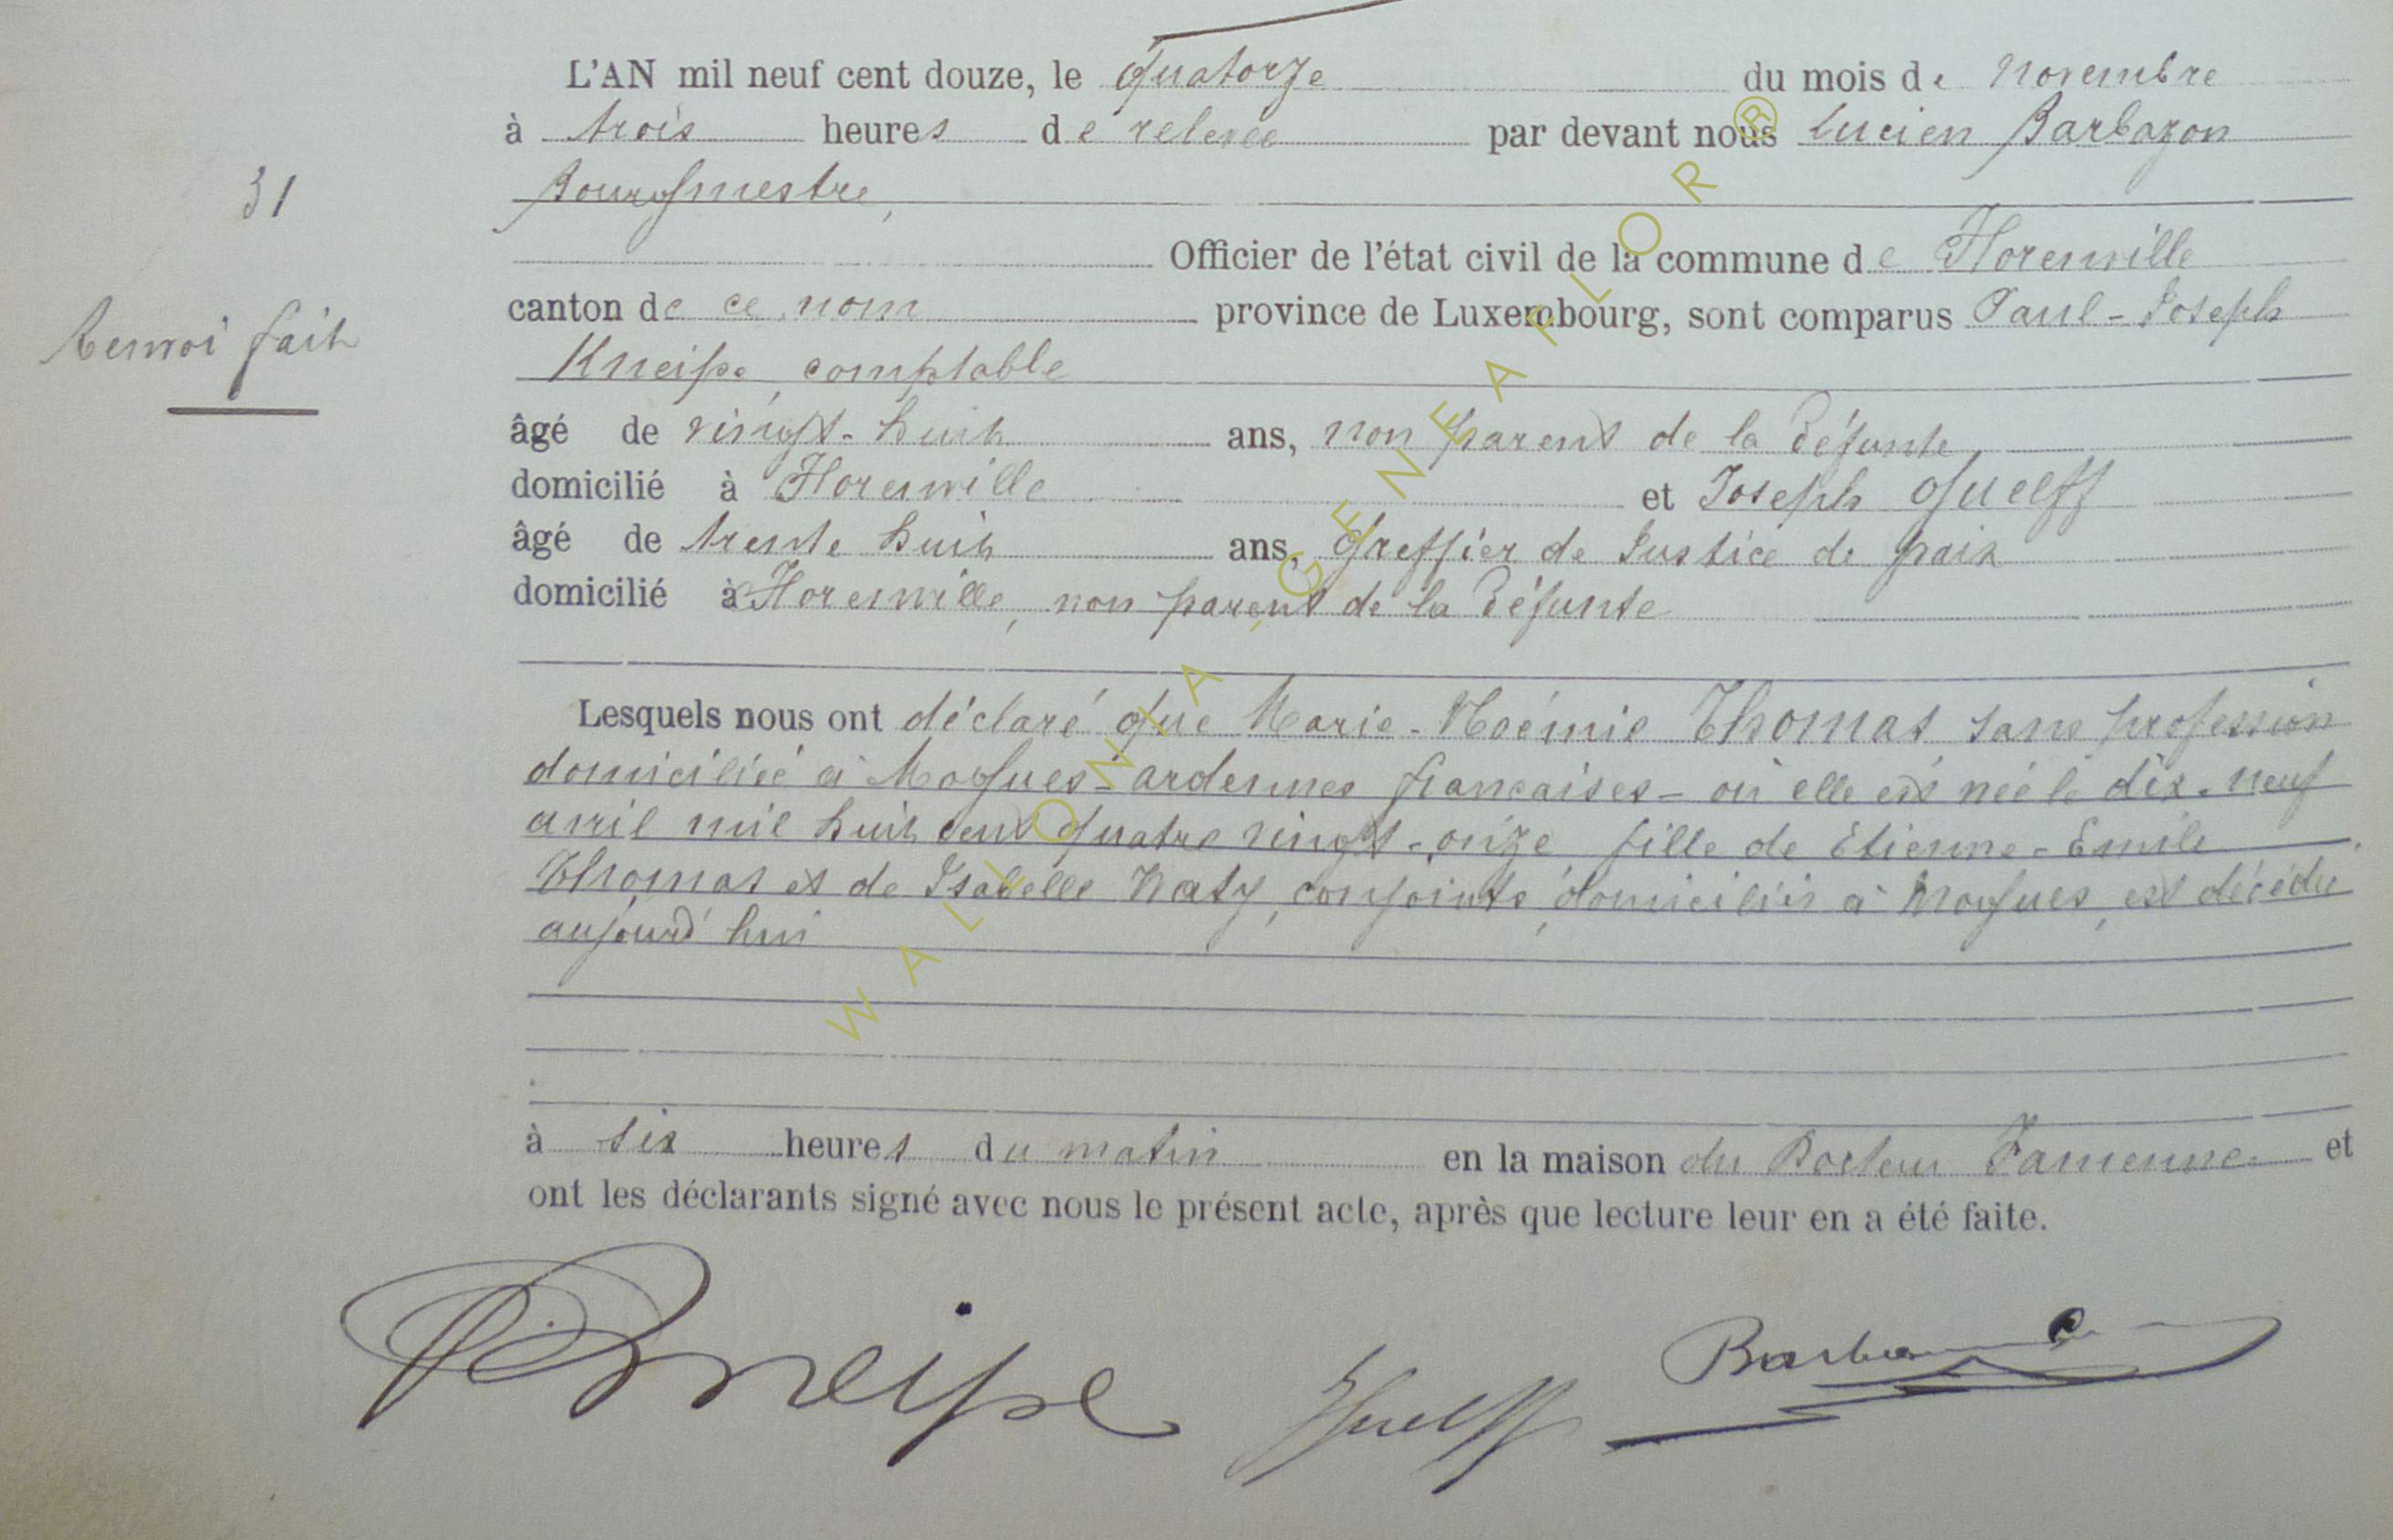 L'AN mil neuf cent douze, le quatorze du mois de novembre
à trois heures de relevée par devant nous Lucien Barbazon
Bourgmestre,
31
Officier de l'état civil de la commune de Florenville
canton de ce nom province de Luxembourg, sont comparus Paul-Joseph
Renvoi fait
Kneipe, comptable
âgé de vingt-huit ans, non parent de la défunte
domicilié à Florenville et Joseph Guelff
âgé de trente huit ans, Greffier de Justice de paix
domicilié à Florenville, non parent de la défunte
Lesquels nous ont déclaré que Marie-Noémie Thomas sans profession
domiciliée à Mogues-ardennes françaises-où elle est née le dix-neuf
avril mil huit cent quatre vingt-onze fille de Etienne-Emile
Thomas et de Isabelle conjoints, domiciliés à Mogues, est décédée
aujourd'hui
à six heures du matin en la maison du Docteur Famenne et
ont les déclarants signé avec nous le présent acte, après que lecture leur en a été faite.
Kneipe Guelff Barbazon
WALLONIA, GENEAPLOR ®